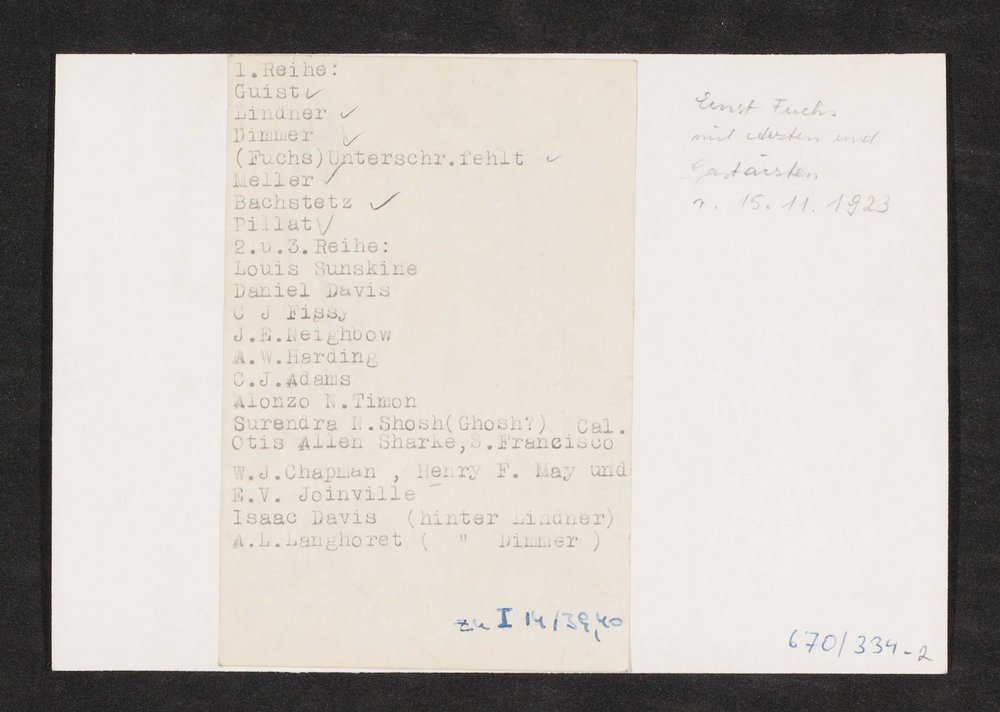 1.Reihe:
Guist ✓
Lindner ✓
Dimmer ✓
(Fuchs)Unterschr.fehlt ✓
Meller ✓
Bachstetz ✓
Pillat ✓
2.u.3.Reihe:
Louis Sunskine
Daniel Davis
C J Fissy
J.E.Neighbow
A.W.Harding
C.J.Adams
Alonzo N.Timon
Surendra N.Shosh(Ghosh?) Cal.
Otis Allen Sharke,S.Francisco
W.J.Chapman , Henry F. May und
E.V. Joinville
Isaac Davis (hinter Lindner)
A.L.Langhoret ( " Dimmer )
zu I 14/39,40
Ernst Fuchs
mit Ärzten und
Gastärzten
v. 15. 11. 1923
670/334-2